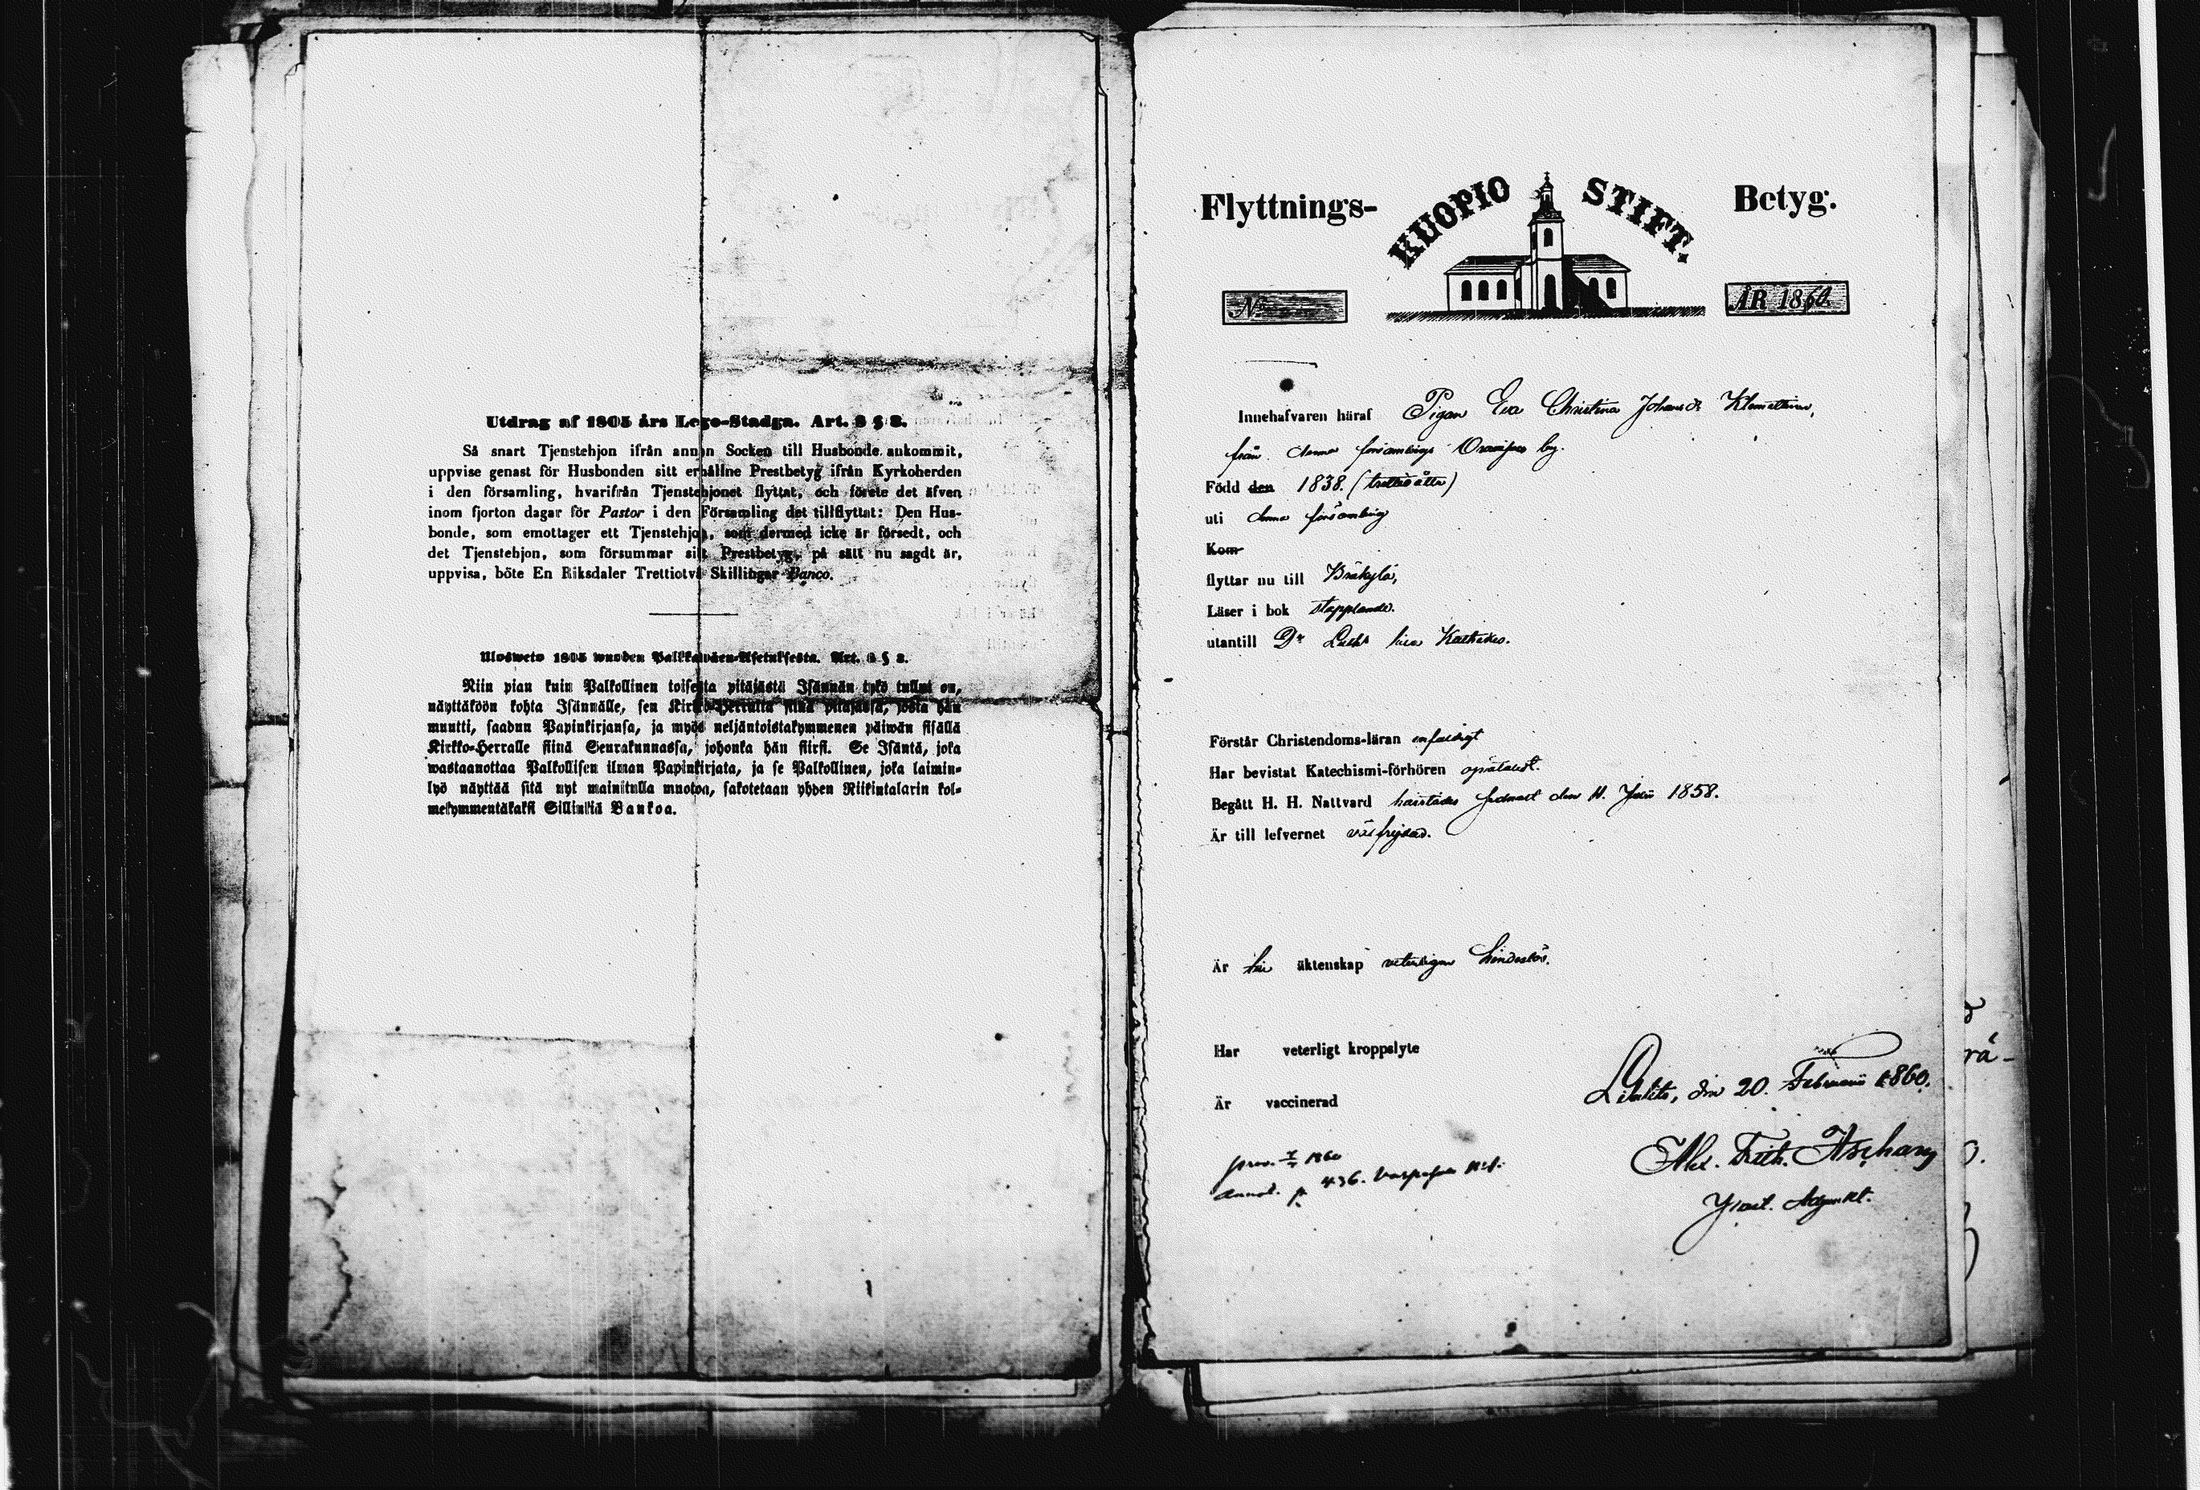 Utdrag af 1805 års Lego-Stadga. Art. 8 § 8.
Så snart Tjenstehjon ifrån annan Socken till Husbonde ankommit,
uppvise genast för Husbonden sitt erhållne Prestbetyg ifrån Kyrkoherden
i den församling, hvarifrån Tjenstehjonet flyttat, och förete det äfven
inom fjorton dagar för Pastor i den Församling det tillflyttat: Den Hus-
bonde, som emottager ett Tjenstehjon, som dermed icke är försedt, och
det Tjenstehjon, som försummar sitt Prestbetyg, på sätt nu sagdt är,
uppvisa, böte En Riksdaler Trettiotvå Skillingar Banco.
Ulosweto 1805 wuoden Palkkawäen-Asetuksesta. Art. 8 § 8.
Niin pian kuin Palkollinen toisesta pitäjästä Isännän tykö tullut on,
näyttäköön kohta Isännälle, sen Kirkko-Herralta siinä pitäjässä, josta hän
muutti, saadun Papinkirjansa, ja myös neljäntoistakymmenen päiwän sisällä
Kirkko-Herralle siinä Seurakunnassa, johonka hän siirsi. Se Isäntä, joka
wastaanottaa Palkollisen ilman Papinkirjata, ja se Palkollinen, joka laimin-
lyö näyttää sitä nyt mainitulla muotoa, sakotetaan yhden Riikintalarin kol-
mekymmentäkaksi Sillinkiä Bankoa.
Flyttnings- KUOPIO STIFT. Betyg.
N:o ÅR 1860.
Innehafvaren häraf Pigan Eva Christina Johansdr Klemettinen,
från denna församlings by.
Född den 1838. (trettioåtta)
uti denna församling
Kom
flyttar nu till Bräkylä,
Läser i bok stapplande.
utantill Dr Luth: Kateches.
Förstår Christendoms-läran enfaldigt
Har bevistat Katechismi-förhören
Begått H. H. Nattvard den 11. Julii 1858.
Är till lefvernet väl frejdad.
Är äktenskap veterligen hinderlös.
Har veterligt kroppslyte
Är vaccinerad
den 20. Februarii 1860.
Alex. Frith. Aschan
Past. Adjunkt.
1860
annot. p. 436.